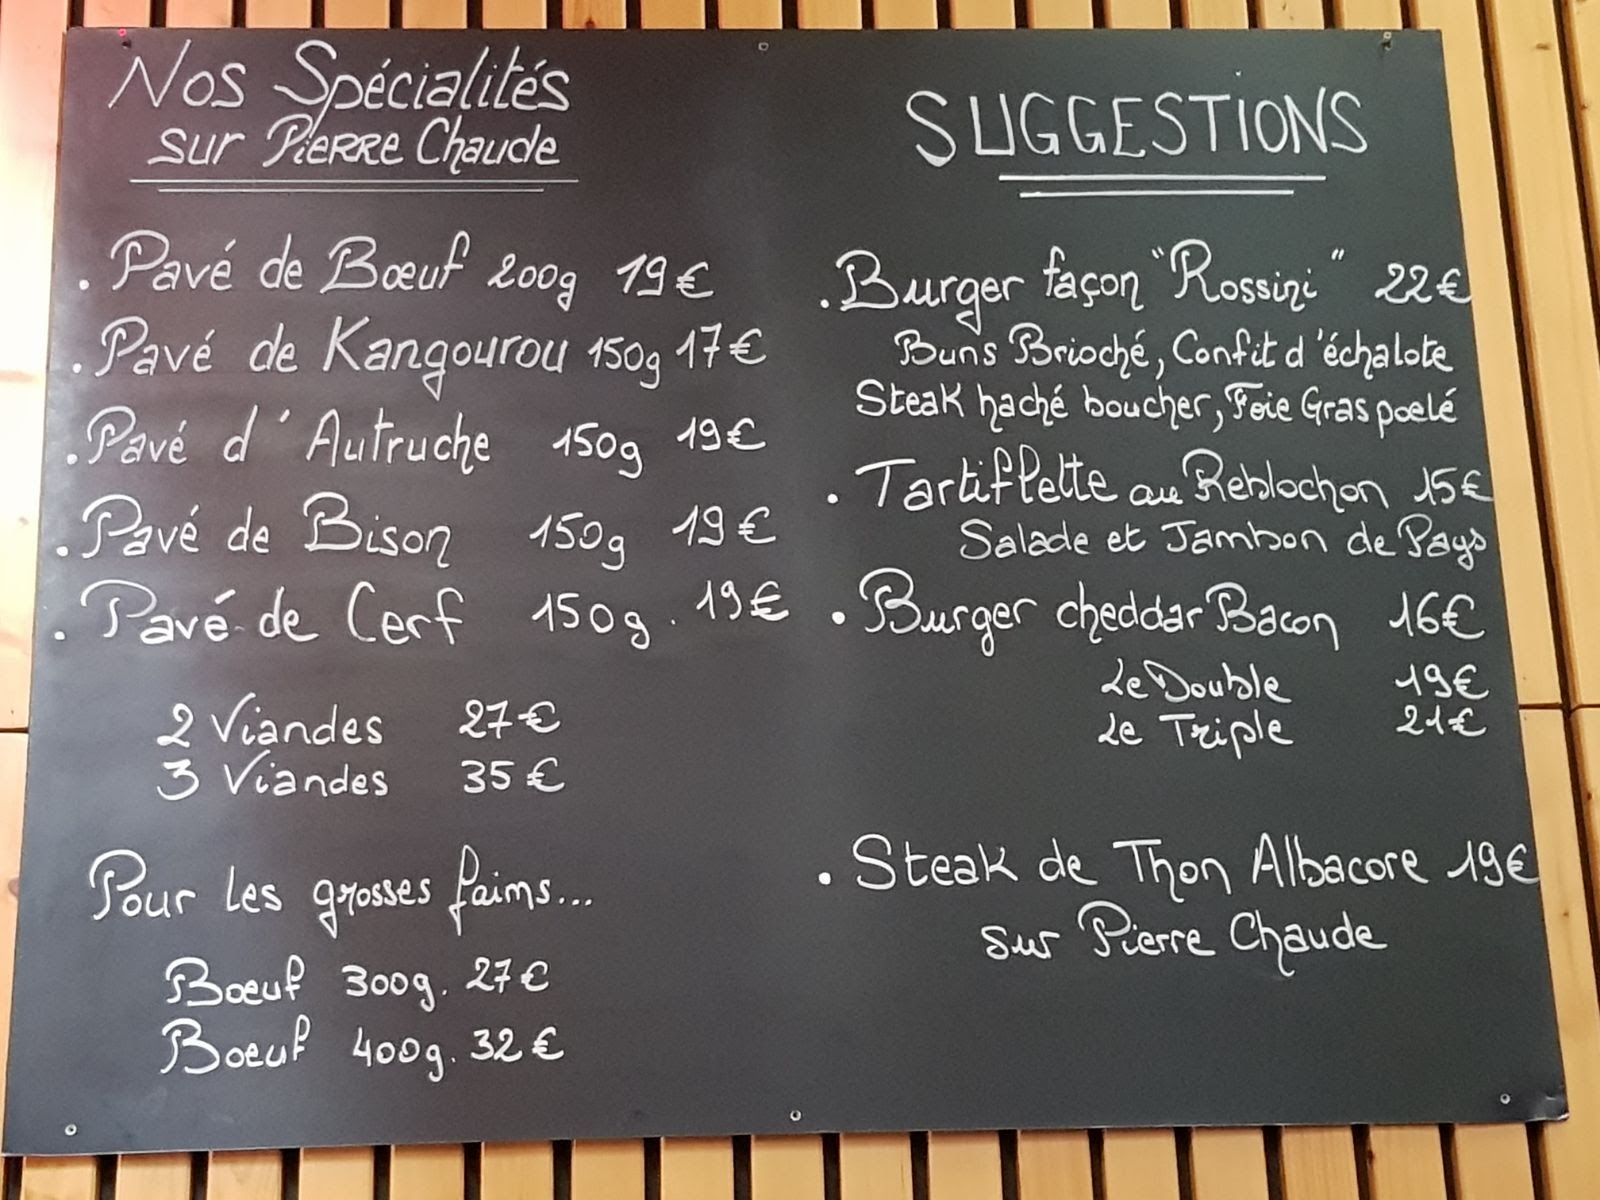 Nos Spécialités
sur Pierre Chaude
. Pavé de Bœuf 200g 19€
. Pavé de Kangourou 150g 17€
. Pavé d'Autruche 150g 19€
. Pavé de Bison 150g 19€
. Pavé de Cerf 150g. 19€
2 Viandes 27€
3 Viandes 35€
Pour les grosses faims...
Bœuf 300g. 27€
Boeuf 400g. 32€
SUGGESTIONS
. Burger façon "Rossini" 22€
Buns Brioché, Confit d'échalote
Steak haché boucher, Foie Gras poelé
. Tartiflette au Reblochon 15€
Salade et Jambon de Pays
. Burger cheddar Bacon 16€
Le Double 19€
Le Triple 21€
. Steak de Thon Albacore 19€
sur Pierre Chaude